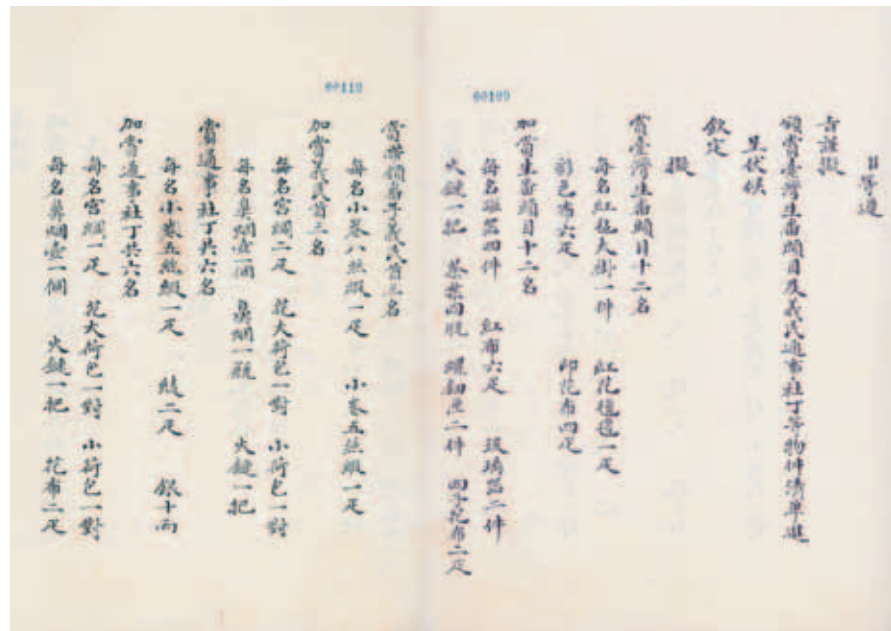 60109
臣等遵
旨謹擬
頒賞臺灣生番頭目及義民通事社丁等物件清單進
呈伏候
欽定
擬
賞臺灣生番頭目十二名
每名紅氆大褂一件 紅花氆氇一疋
彩色布六疋 印花布四疋
加賞生番頭目十二名
每名磁器四件 紅布六疋 玻璃器二件
火鏈一把 茶葉四瓶 螺鈿匣二件 回子花布二疋
60110
賞帶領番子義民首三名
每名小卷八絲緞一疋 小卷五絲緞一疋
加賞義民首三名
每名宮綢二疋 花大荷包一對 小荷包一對
每名鼻烟壺一個 鼻烟一瓶 火鏈一把
賞通事社丁共六名
每名小卷五絲緞一疋 綾二疋 銀十兩
加賞通事社丁共六名
每名宮綢一疋 花大荷包一對 小荷包一對
每名鼻烟壺一個 火鏈一把 花布二疋